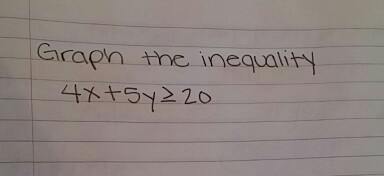 Graph the inequality
4x+5y≥20